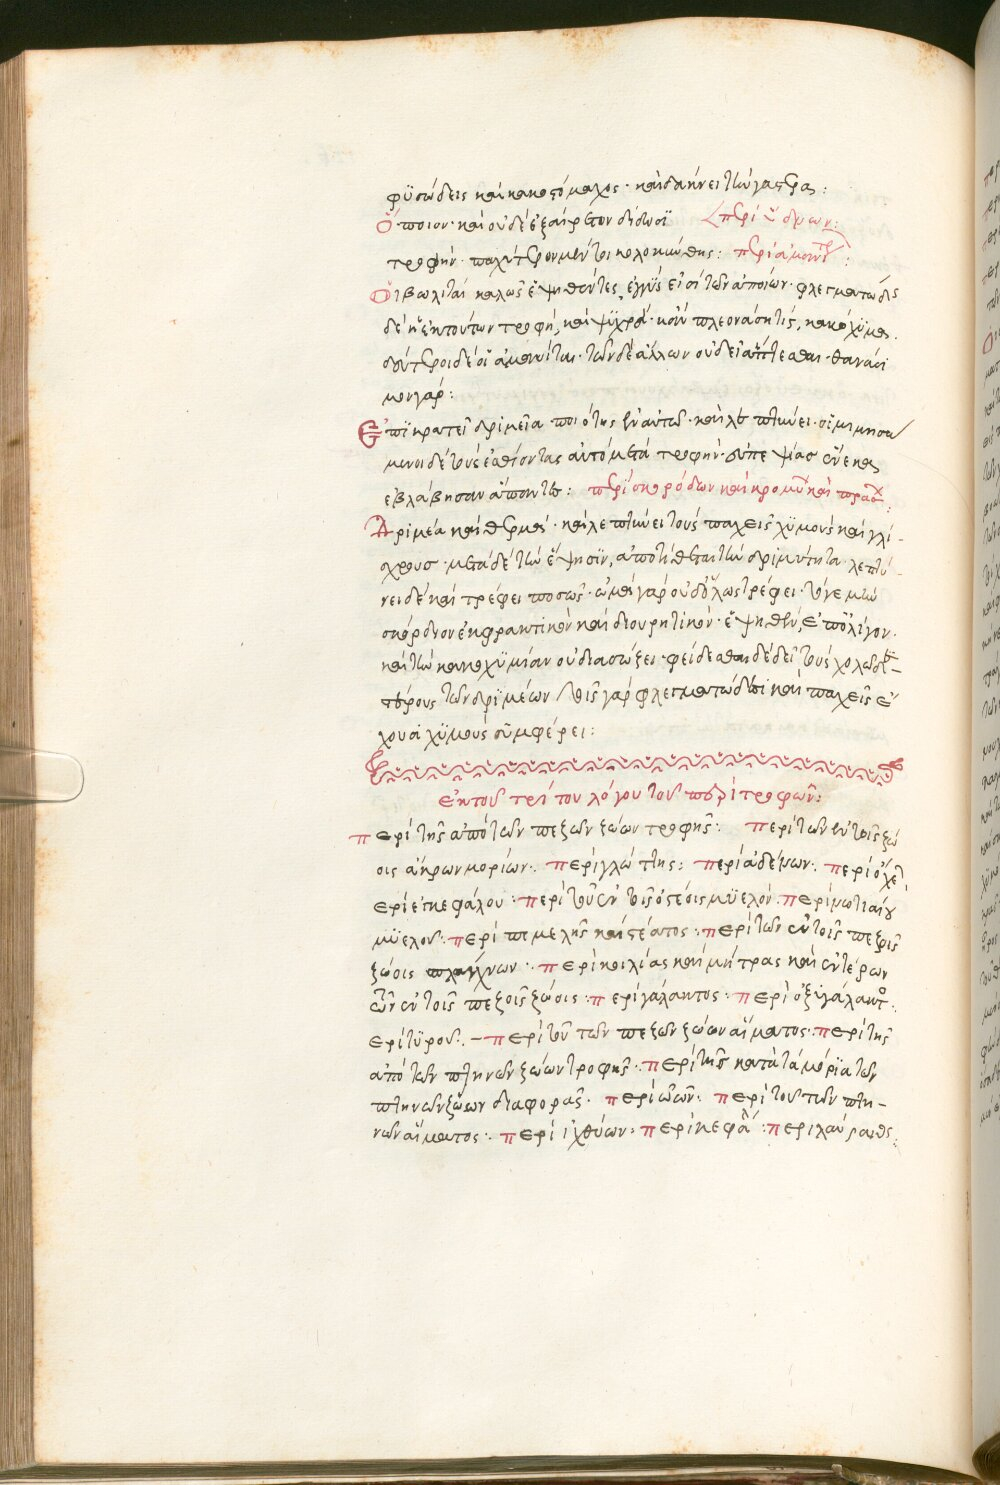 φϋσώδεις καὶ κακοστόμαχος· καὶ δάκνει τὴν γαστέρα:
Ὁ ποιον· καὶ οὐδὲ ἐξαίρετον δίδωσϊ περὶ ὕδνων:
τροφὴν· παχυτέραν μέντοι κολοκύνθης: περὶ ἀμανιτ:
Οἱ βωλίται καλῶς ἑψηθέντες, ἐγγύς εἰσί τῶν ἀποίων· φλεγματώδης
δὲ ἡ ἐκ τούτων τροφὴ, καὶ ψϋχρά· κᾂν πλεονάσῃ τίς, κακόχϋμα.
δεύτεροι δὲ οἱ ἀμανίται· τῶν δὲ ἄλλων οὐδεῖ ἅπτεσθαι· θανάσι
μον γάρ:
Ἐπϊκρατεῖ δριμεῖα ποιότης ἐν αὐτῶ· καὶ λεπτύνει· οἱ μιμησα
μενοι δὲ τοὺς ἐσθίοντας αὐτὸ μετὰ τροφὴν· εὐπεψίας ἕνεκα
ἐβλάβησαν ἅπαντες: περὶ σκορόδων καὶ κρομύ καὶ πρασ:
Δριμέα καὶ θερμὰ· καὶ λεπτύνει τοὺς παχεῖς χϋμοὺς καὶ γλί-
σχρους· μετὰ δὲ τὴν ἕψησϊν, ἀποτίθεται τὴν δριμύτητα λεπτύ-
νει δὲ καὶ τρέφει ποσῶς· ὠμὰ γὰρ οὐδόλως τρέφει· τόγε μὴν
σκόροδον ἐκφρακτικὸν καὶ διουρητικόν· ἑψηθὲν, ἐπ' ὀλίγον·
καὶ τὴν κακοχϋμίαν οὐ διασώζει· φείδεσθαι δὲ δεῖ τοὺς χολωδε-
στέρους τῶν δρϊμέων τοῖς γὰρ φλεγματώδεσϊ καὶ παχεῖς ἔ
χουσι χϋμοὺς σϋμφέρει:
ἐκ τοῦ τρίτου λόγου τοῦ περὶ τροφῶν:
περὶ τῆς ἀπὸ τῶν πεζῶν ζώων τροφῆς: περὶ τῶν ἐν τοῖς ζώ
οις ἄκρων μορίων: περὶ γλώττης: περὶ ἀδένων: περὶ ὄρχε
ερὶ ἐγκεφάλου: περὶ τοῦ ἐν τοῖς ὀστέοις μϋελοῦ: περὶ νωτιαίου
μϋελοῦ: περὶ πιμελῆς καὶ στέατος: περὶ τῶν ἐν τοῖς πεζοῖς
ζώοις σπλάγχνων: περὶ κοιλίας καὶ μήτρας καὶ ἐντέρων
τῶν ἐν τοῖς πεζοῖς ζώοις: περὶ γάλακτος: περὶ ὀξϋγάλακτο:
ερὶ τϋροῦ: – περὶ τοῦ τῶν πεζῶν ζώων αἵματος: περὶ τῆς
ἀπὸ τῶν πτηνῶν ζώων τροφῆς: περὶ τῆς κατὰ τὰ μόρϊα τῶν
πτηνῶν ζώων διαφορᾶς: περὶ ὠῶν: περὶ τοῦ τῶν πτη-
νῶν αἵματος: περὶ ἰχθύων: περὶ κεφά: περὶ λαύρακος: